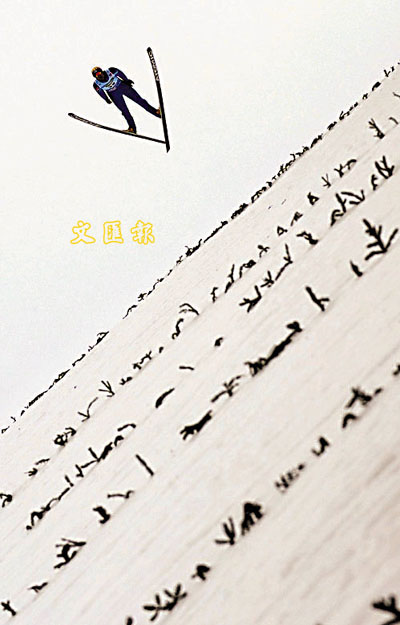 文匯報